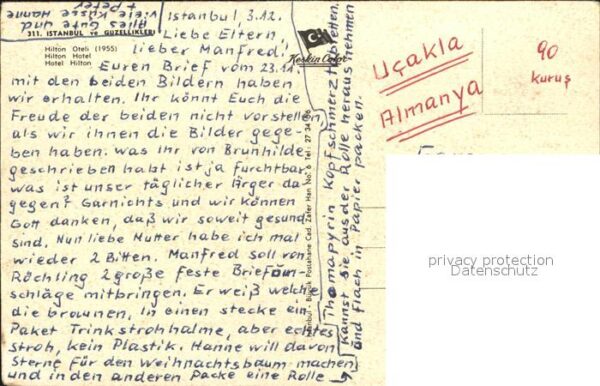 Alles Gute und
viele Küsse Hanne
+ Peter
311. ISTANBUL ve GÜZELLİKLERİ
Hilton Oteli (1955)
Hilton Hotel
Hotel Hilton
Keskin Color
Istanbul, 3.12.
Liebe Eltern,
lieber Manfred!
Euren Brief vom 23.11.
mit den beiden Bildern haben
wir erhalten. Ihr könnt Euch die
Freude der beiden nicht vorstellen,
als wir ihnen die Bilder gege-
ben haben. was ihr von Brunhilde
geschrieben habt ist ja furchtbar
was ist unser täglicher Ärger da
gegen? Garnichts und wir können
Gott danken, daß wir soweit gesund
sind. Nun liebe Mutter habe ich mal
wieder 2 Bitten. Manfred soll von
Röchling 2 große feste Briefüm-
schläge mitbringen. Er weiß welche
die braunen. In einen stecke ein
Paket Trinkstrohhalme, aber echtes
Stroh, kein Plastik. Hanne will davon
Sterne für den Weihnachtsbaum machen
und in den anderen Packe eine Rolle
Thomapyrin Kopfschmerztabletten.
Kannst sie aus der Rolle heraus nehmen
und flach in Papier packen.
Büyük Postahane Cad. Zafer Han No. 6 Tel: 27 34
Uçakla
Almanya
90
kuruş
privacy protection
Datenschutz